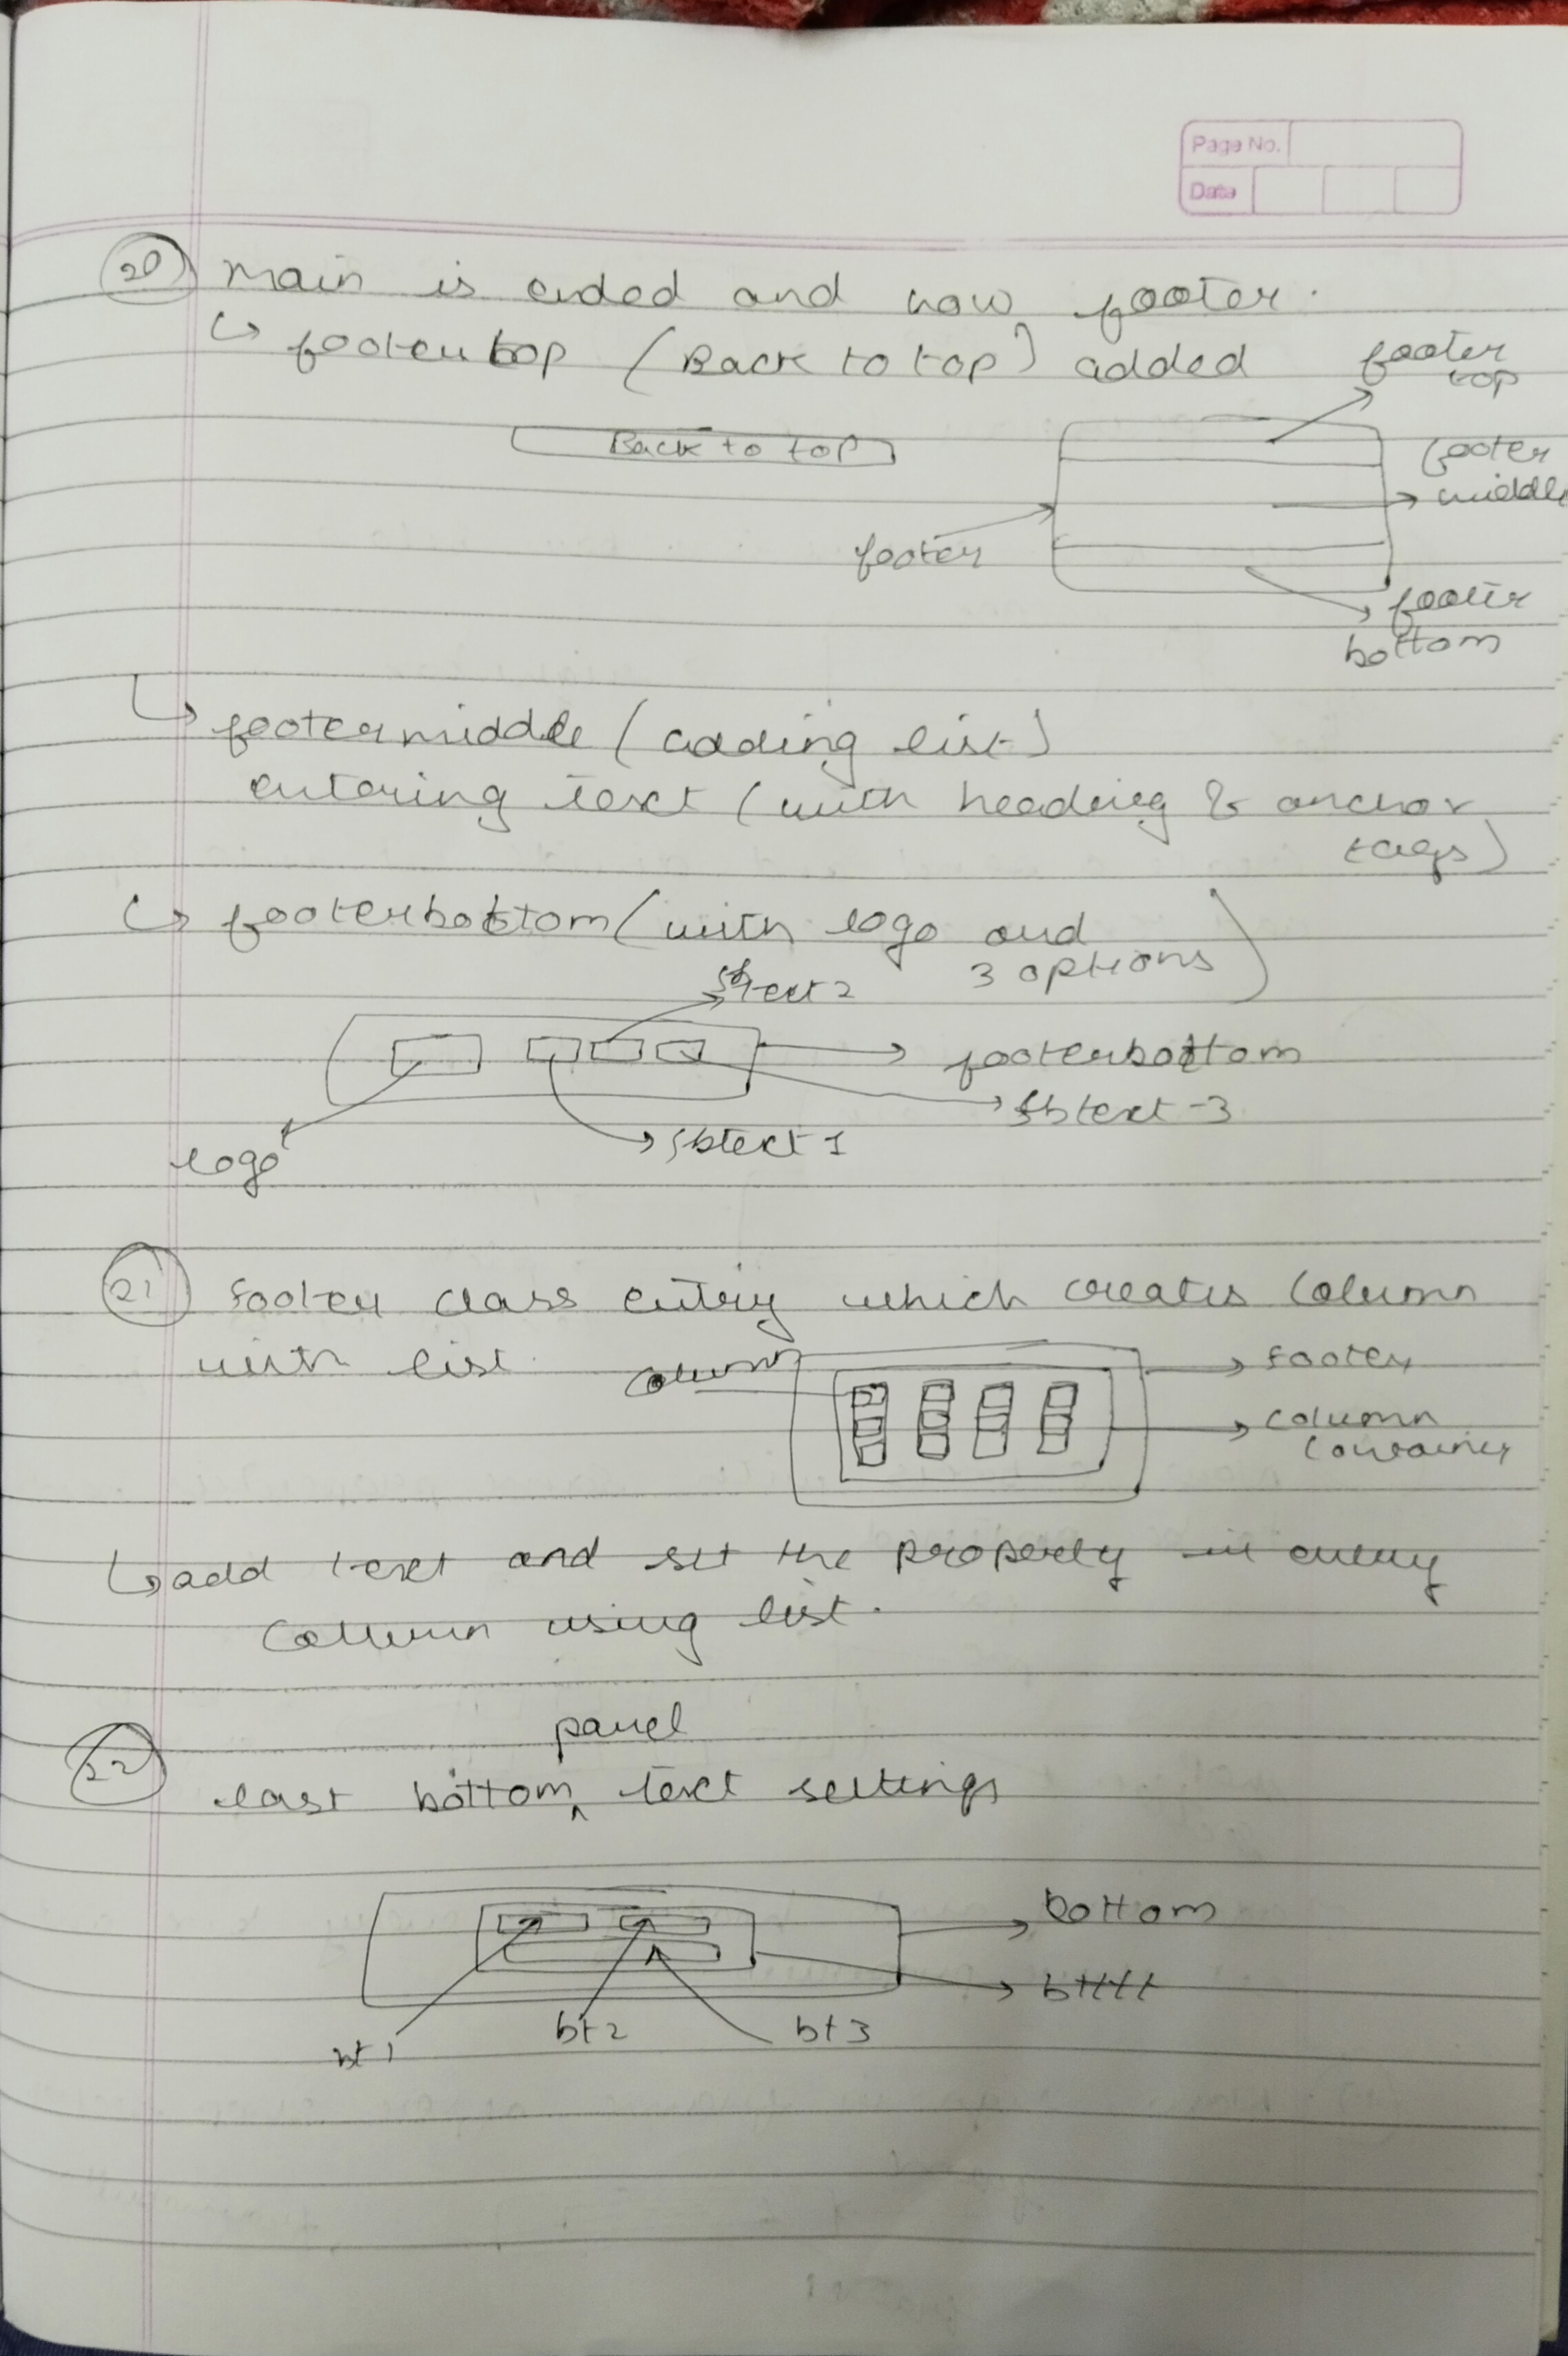 Page No.
Date
20 main is ended and now footer.
↳ footertop (Back to top) added
footer top
Back to top
footer middle
footer
footer bottom
↳ footermiddle (adding list)
entering text (with heading & anchor tags)
↳ footerbottom (with logo and 3 options)
fbtext 2
footerbottom
fbtext-3
fbtext 1
logo
21 footer class entry which creates column
with list.
column
footer
column
container
↳ add text and set the property in every
column using list.
panel
22 last bottom ^ text settings
bottom
bt1
bt2
bt3